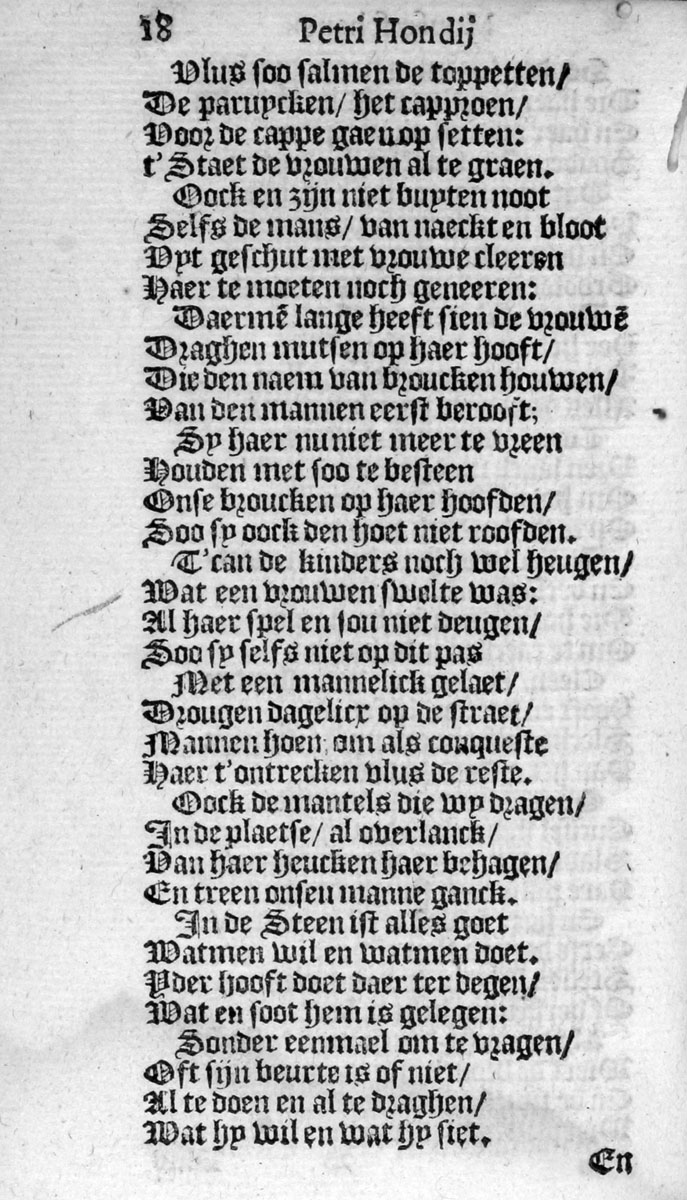 18 Petri Hondij
Vlus soo salmen de toppetten/
De paruycken/ het capproen/
Voor de cappe gaeu op setten:
t'Staet de vrouwen al te graen.
Oock en zijn niet buyten noot
Selfs de mans/ van naeckt en bloot
Vyt geschut met vrouwe cleeren
Haer te moeten noch geneeren:
Daermē lange heeft sien de vrouwē
Draghen mutsen op haer hooft/
Die den naem van broucken houwen/
Van den mannen eerst berooft;
Sy haer nu niet meer te vreen
Houden met soo te besteen
Onse broucken op haer hoofden/
Soo sy oock den hoet niet roofden.
T'can de kinders noch wel heugen/
Wat een vrouwen swelte was:
Al haer spel en sou niet deugen/
Soo sy selfs niet op dit pas
Met een mannelick gelaet/
Drougen dagelicx op de straet/
Mannen hoen om als conqueste
Haer t'ontrecken vlus de reste.
Oock de mantels die wy dragen/
In de plaetse/ al overlanck/
Van haer heucken haer behagen/
En treen onsen manne ganck.
In de Steen ist alles goet
Watmen wil en watmen doet.
Yder hooft doet daer ter degen/
Wat en soot hem is gelegen:
Sonder eenmael om te vragen/
Oft sijn beurte is of niet/
Al te doen en al te draghen/
Wat hy wil en wat hy siet.
En